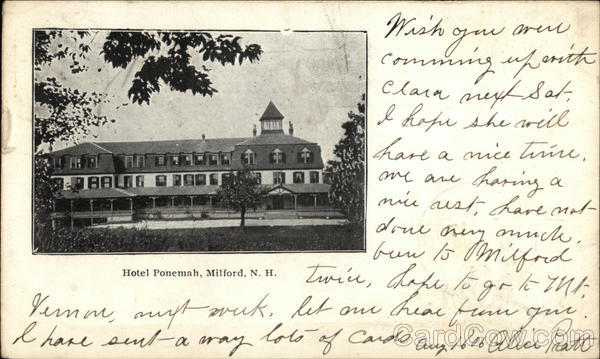 Wish you were
comming up with
Clara next Sat.
I hope she will
have a nice time.
we are having a
nice rest, have not
done very much,
been to Milford
twice, hope to go to Mt.
Vernon, next week, let me hear from you.
I have sent a way lots of cards
Aug 16th Pratt
Hotel Ponemah, Milford, N. H.
CardCow.com